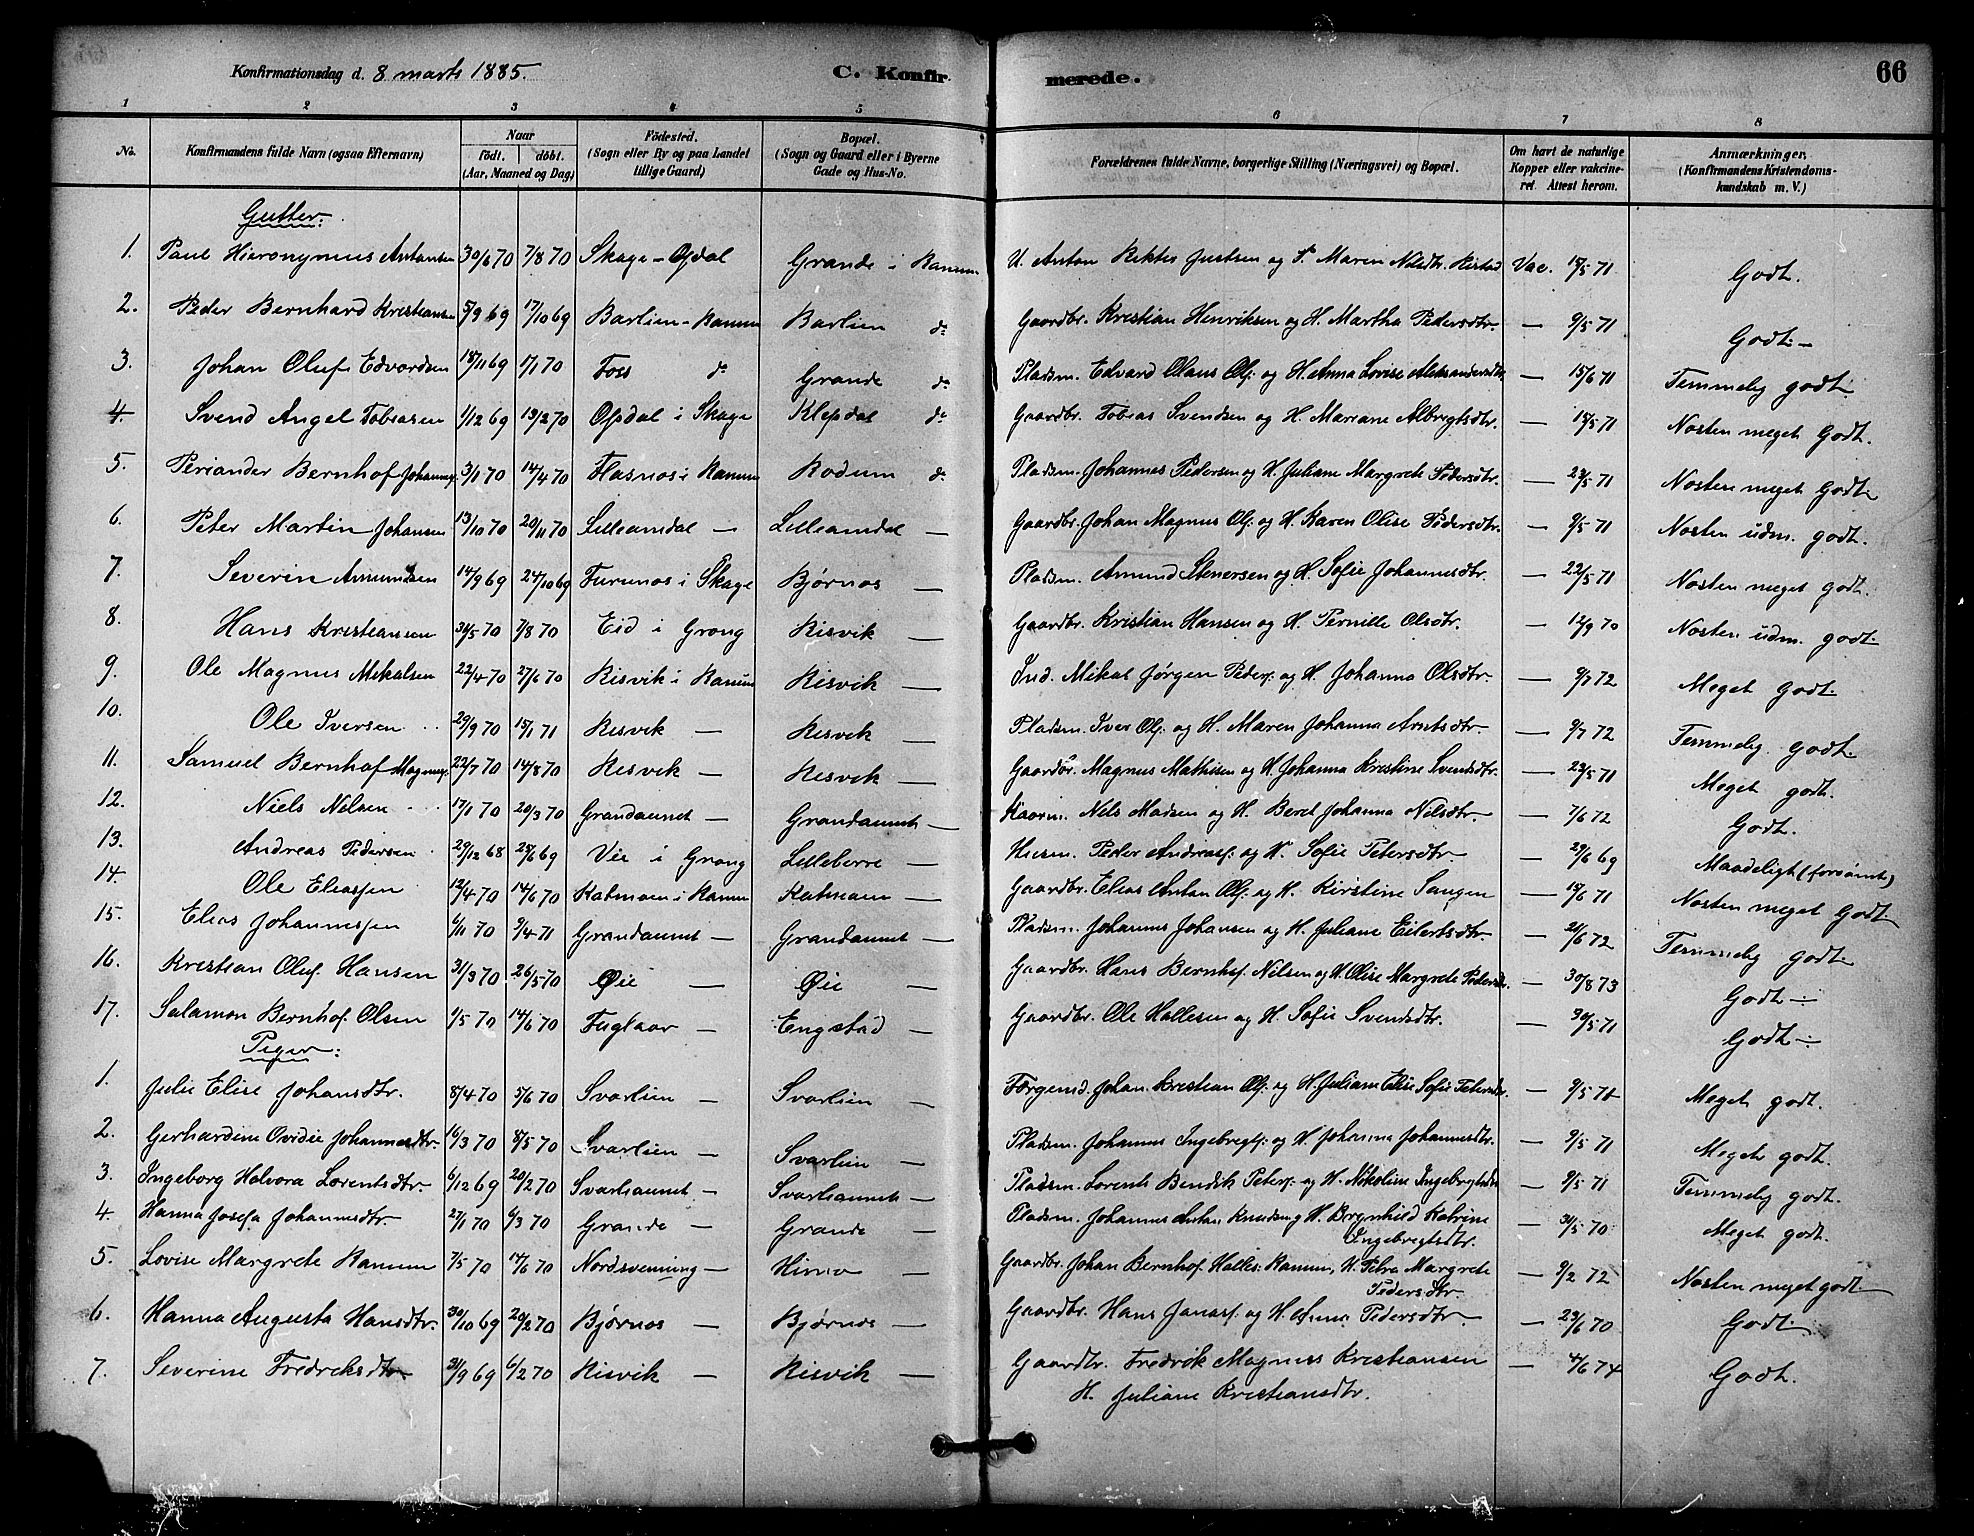 Konfirmationsdag d. 8 marts 1885. C. Konfir merede. 66
1 2 3 4 5 6 7 8
No. Konfirmandens fulde Navn (ogsaa Efternavn) Naar födt. döbt. (Aar, Maaned og Dag) Födested. (Sogn eller By og paa Landet tillige Gaard) Bopæl. (Sogn og Gaard eller i Byerne Gade og Hus-No. Forældrenes fulde Navne, borgerlige Stilling (Næringsvei) og Bopæl. Om havt de naturlige Kopper eller vakcineret. Attest herom. Anmærkninger. (Konfirmandens Kristendomskundskab m. V.)
Gutter:
1. Paul Hieronymus Antonsen 30/6 70 7/8 70 Skage - Opdal Grande i Ranum U. Anton Rektes Justsen og P. Maren Nilsdtr. Vac. 15/5 71 Godt.
2. Peder Bernhard Kristiansen 5/9 69 17/10 69 Barlien - Ranum Barlien do Gaardbr. Kristian Henriksen og H. Martha Pedersdtr. — 9/5 71 Godt. —
3. Johan Oluf Edvardsen 18/11 69 1/1 70 Foss do Grande do Pladsm. Edvard Olaus Ols: og H. Anna Lovise Aleksandersdtr. — 15/6 71 Temmelig godt.
4. Svend Angel Tobiasen 1/12 69 13/2 70 Opdal i Skage Klepdal do Gaardbr. Tobias Svendsen og H. Mariane Albregtsdtr. — 15/5 71 Nosten meget Godt.
5. Periander Bernhof Johannes. 3/1 70 14/4 70 Flasnos i Ranum Rodum do Pladsm. Johannes Pedersen og H. Juliane Margrete Pedersdtr. — 23/5 71 Nosten meget Godt.
6. Peter Martin Johansen 13/10 70 20/11 70 Lilleamdal — Lilleamdal — Gaardbr. Johan Magnus Ols: og H. Karen Olise Pedersdtr. — 9/5 71 Nosten udm. godt.
7. Severin Amundsen 14/9 69 24/10 69 Furunos i Skage Bjørnos — Pladsm. Amund Stenersen og H. Sofie Johannesdtr. — 22/5 71 Nosten meget godt.
8. Hans Kristiansen 31/5 70 7/8 70 Eid i Grong Risvik — Gaardbr. Kristian Hansen og H. Pernille Olsdtr. — 12/9 70 Nosten udm. godt.
9. Ole Magnus Mikalsen 22/4 70 27/6 70 Risvik i Ranum Risvik — Ind. Mikal Jørgen Peders: og H. Johanna Olsdtr. — 9/7 72 Meget godt.
10. Ole Iversen 29/9 70 15/1 71 Risvik — Risvik — Pladsm. Iver Ols: og H. Maren Johanna Arntsdtr. — 9/7 72 Temmelig godt.
11. Samuel Bernhof Magnus. 22/7 70 14/8 70 Risvik — Risvik — Gaardbr. Magnus Mathisen og H. Johanna Kristine Svendsdtr. — 23/5 71 Meget godt.
12. Niels Nilsen 17/1 70 20/3 70 Grandaunet — Grandaunet — Nels Madsen og H. Beret Johanna Nilsdtr. — 7/6 72 Godt.
13. Andreas Pedersen 29/12 68 25/6 69 Vie i Grong Lilleberre — Husm. Peder Andreass: og H. Sofie Petersdtr. — 29/6 69 Maadeligt (forsömt)
14. Ole Eliassen 12/4 70 14/6 70 Katmoen i Ranum Katmoen — Gaardbr. Elias Antan Ols: og H. Kirstine Sangen — 15/6 71 Nosten meget Godt.
15. Elias Johannessen 6/11 70 9/4 71 Grandaunet — Grandaunet — Pladsm. Johannes Johansen og H. Juliane Eilertsdtr. — 21/6 72 Temmelig godt.
16. Kristian Oluf Hansen 31/3 70 26/5 70 Øie — Øie — Gaardbr. Hans Bernhof Nilsen og H. Olise Margrete Pedersdtr. — 30/8 73 Godt —
17. Salamon Bernhof Olsen 1/5 70 14/6 70 Fuglaar — Engstad — Gaardbr. Ole Hallesen og H. Sofie Svendsdtr. — 30/5 71 Godt —
Piger:
1. Julie Elise Johansdtr. 8/4 70 5/6 70 Svarlien — Svarlien — Færgemd. Johan Kristian Ols: og H. Juliane Elise Sofie Petersdtr. — 9/5 71 Meget godt.
2. Gerhardine Ovidie Johannesdtr. 16/3 70 8/5 70 Svarlien — Svarlien — Pladsm. Johannes Ingebregts: og H. Johanna Johannesdtr. — 9/5 71 Meget godt.
3. Ingeborg Halvora Lorentsdtr. 6/12 69 20/2 70 Svarhaunet — Svarhaunet — Pladsm. Lorents Bendik Peters: og H. Nikoline Ingebregtsdtr — 9/5 71 Temmelig godt.
4. Hanna Josefa Johannesdtr. 27/1 70 6/3 70 Grande — Grande — Pladsm. Johannes Antan Knudsen og H. Brynhild Katrine Ingebregtsdtr. — 31/5 70 Meget godt.
5. Lovise Margrete Ranum 7/5 70 14/6 70 Nordsvenning — Himo — Gaardbr. Johan Bernhof Halles: Ranum, H. Petra Margrete Pedersdtr. — 9/2 72 Nosten meget godt.
6. Hanna Augusta Hansdtr. 30/10 69 20/2 70 Bjørnos — Bjørnos — Gaardbr. Hans Jonass: og H. Anna Pedersdtr. — 23/6 70 Godt.
7. Severine Fredriksdtr 21/9 69 6/2 70 Risvik — Risvik — Gaardbr. Fredrik Magnus Kristiansen — 4/6 74 Godt.
H. Juliane Kristiansdtr.